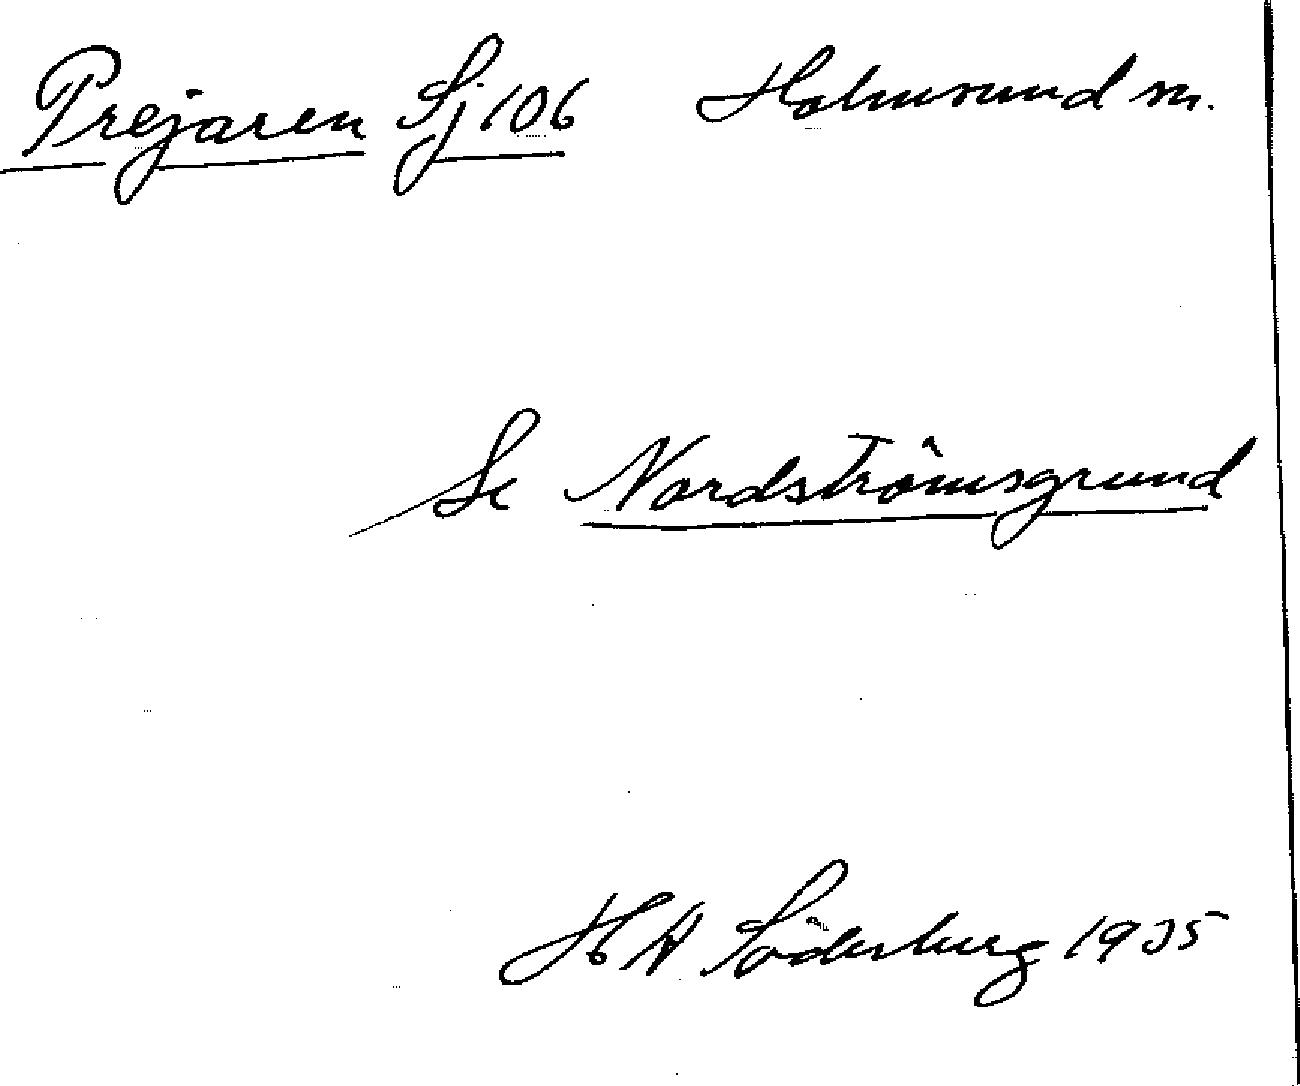 Prejaren Sj 106 Holmsund sn.
Se Nordströmsgrund
H A Söderberg 1935